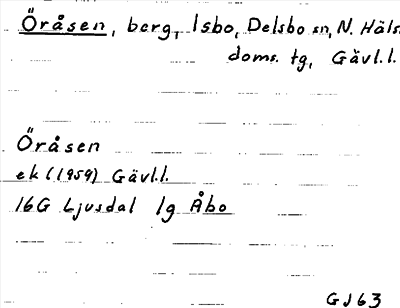 Öråsen, berg, Isbo, Delsbo sn, N. Häls.
doms. tg, Gävl.l.
Öråsen
ek (1959) Gävl.l.
16G Ljusdal 1g Åbo
GJ63